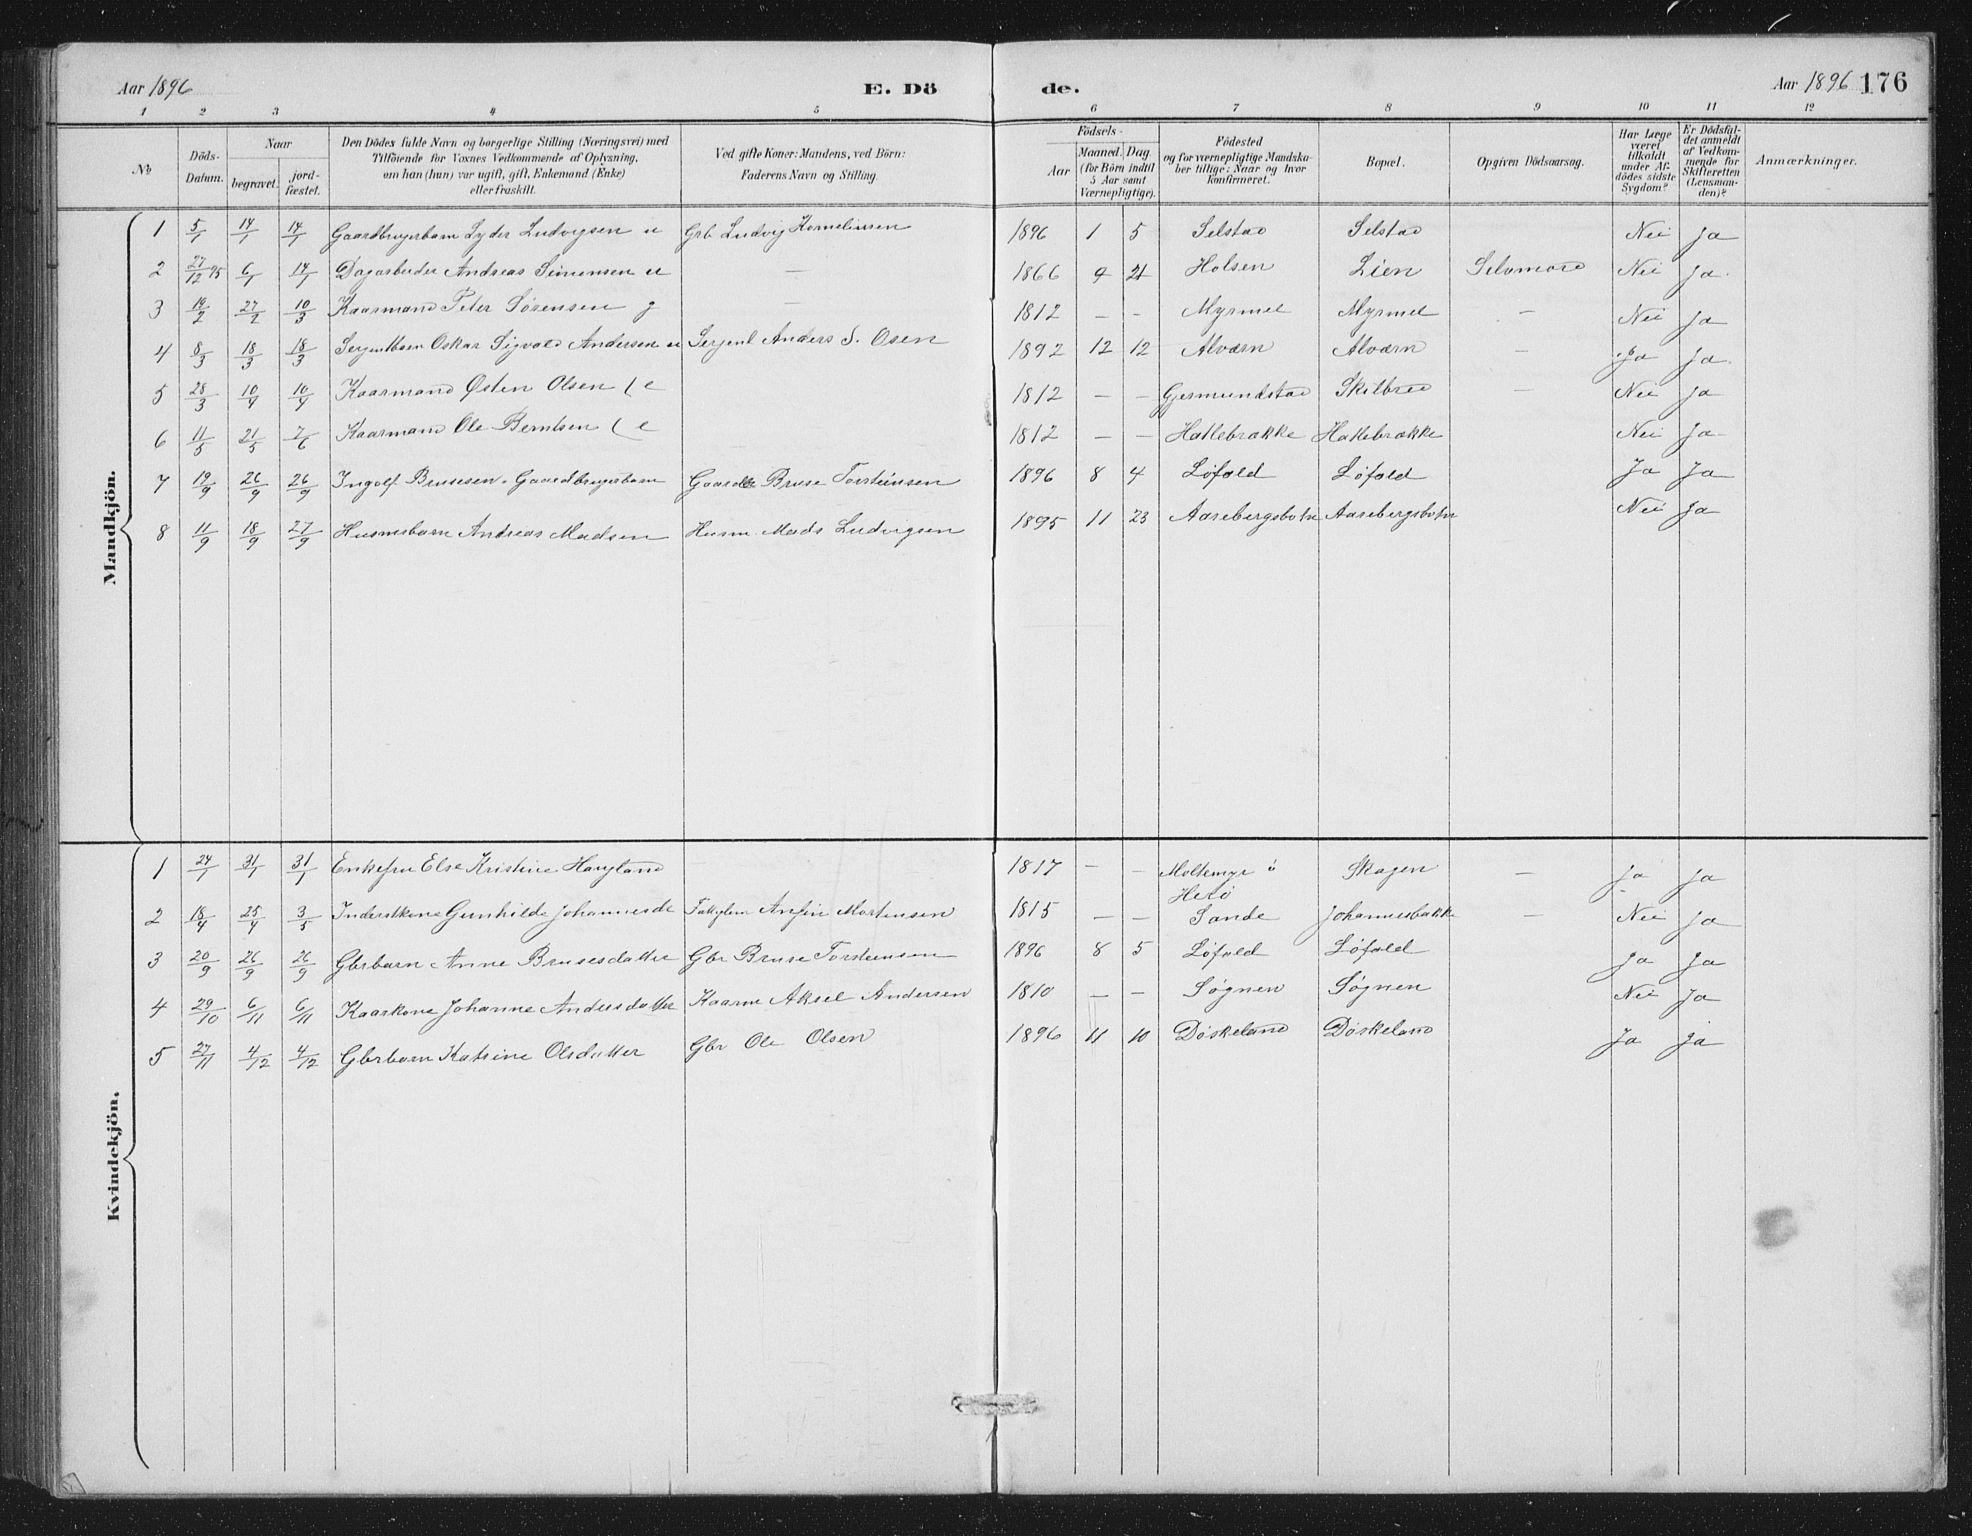 Aar 1896 E. Dö de. Aar 1896 176
1 2 3 4 5 6 7 8 9 10 11 12
No
Döds-Datum.
Naar
begravet.
jord-fæstet.
Den Dödes fulde Navn og borgerlige Stilling (Næringsvei) med
Tilföiende for Voxnes Vedkommende af Oplysning,
om han (hun) var ugift, gift, Enkemand (Enke)
eller fraskilt.
Ved gifte Koner: Mandens, ved Börn:
Faderens Navn og Stilling.
Födsels-
Aar
Maaned. Dag
(for Börn indtil
5 Aar samt
Værnepligtige).
Födested
og for værnepligtige Mandska-
ber tillige: Naar og hvor
konfirmeret.
Bopæl.
Opgiven Dödsaarsag.
Har Læge
været
tilkaldt
under Af-
dödes sidste
Sygdom?
Er Dödsfal-
det anmeldt
af Vedkom-
mende for
Skifteretten
(Lensman-
den)?
Anmærkninger.
Mandkjön.
1 5/1 14/1 14/1 Gaardbrugerbarn Lyder Ludvigsen u Grb. Ludvig Korneliusen 1896 1 5 Selstad Selstad Nei Ja
2 27/12 95 6/1 14/1 Dagarbeider Andreas Simensen u — 1866 9 21 Holsen Lien Selvmord Nei Ja.
3 19/2 27/2 10/3 Kaarmand Peter Sørensen g — 1812 — — Myrmel Myrmel — Nei Ja
4 8/3 18/3 18/3 Sergentbarn Oskar Sigvald Andersen u Sergent Anders S. Osen 1892 12 12 Alværn Alværn — Ja Ja.
5 28/3 10/4 10/4 Kaarmand Østen Olsen (e 1812 — — Gjesmundstad Skilbred — Nei Ja
6 11/5 21/5 7/6 Kaarmand Ole Berntsen (e 1812 — — Hallebrække Hallebrække Nei Ja
7 19/9 26/9 26/9 Ingolf Brusesen. Gaardbrugerbarn Gaardbr Bruse Torsteinsen 1896 8 4 Løfald Løfald Ja Ja
8 11/9 18/9 27/9 Husmsbarn Andreas Madsen Husm. Mads Ludvigsen 1895 11 23 Aarebergsbotn Aarebergsbotn Nei Ja
Kvindekjön.
1 24/1 31/1 31/1 Enkefru Else Kristine Haugland 1817 — — Moltemyr i Herø Skagen — Ja Ja
2 18/4 25/4 3/5 Inderstkone Gunhilde Johannesdr Fattiglem Anfin Mortensen 1815 — — Sande Johannesbakke — Nei Ja
3 20/9 26/9 26/9 Gbrbarn Anne Brusesdatter Gbr Bruse Torsteinsen 1896 8 5 Løfald Løfald Ja Ja
4 29/10 6/11 6/11 Kaarkone Johanne Andersdatter Kaarm Aksel Andersen 1810 — — Søgnen Søgnen Nei Ja
5 27/11 4/12 4/12 Gbrbarn Katrine Olsdatter Gbr Ole Olsen 1896 11 10 Døskeland Døskeland Ja Ja